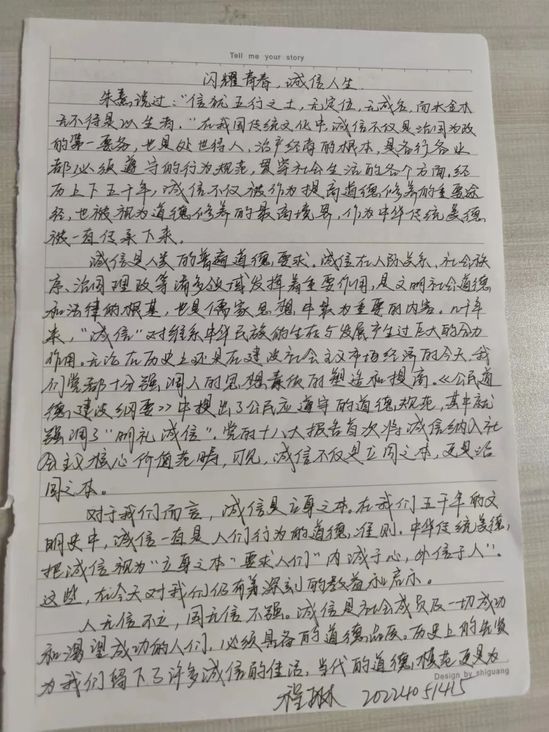 Tell me your story
闪耀青春,诚信人生
朱熹说过:“信犹五行之土,无定位,无成名,而水金木
无不待是以生者。”在我国传统文化中,诚信不仅是治国为政
的第一要务,也是处世待人、治产经商的根本,是各行各业
都必须遵守的行为规范,贯穿社会生活的各个方面。经
历上下五千年,诚信不仅被作为提高道德修养的重要途
径,也被视为道德修养的最高境界,作为中华传统美德,
被一直传承下来。
诚信是人类的普遍道德要求。诚信在人际关系、社会秩
序、治国理政等诸多领域发挥着重要作用,是文明社会道德
和法律的根基,也是儒家思想中最为重要的内容。几千年
来,“诚信”对维系中华民族的生存与发展产生过巨大的合力
作用。无论在历史上还是在建设社会主义市场经济的今天,我
们党都十分强调人的思想素质的塑造和提高。《公民道
德建设纲要》中提出了公民应遵守的道德规范,其中就
强调了“明礼诚信”。党的十八大报告首次将诚信纳入社
会主义核心价值范畴,可见,诚信不仅是立国之本,更是治
国之本。
对于我们而言,诚信是立身之本。在我们五千年的文
明史中,诚信一直是人们行为的道德准则。中华传统美德,
把诚信视为“立身之本”要求人们“内诚于心,外信于人”。
这些,在今天对我们仍有着深刻的教益和启示。
人无信不立,国无信不强。诚信是社会成员及一切成功
和渴望成功的人们,必须具备的道德品质。历史上的先贤
为我们留下了许多诚信的佳话,当代的道德模范更是为
Design by shiguang
程琳 20224051415